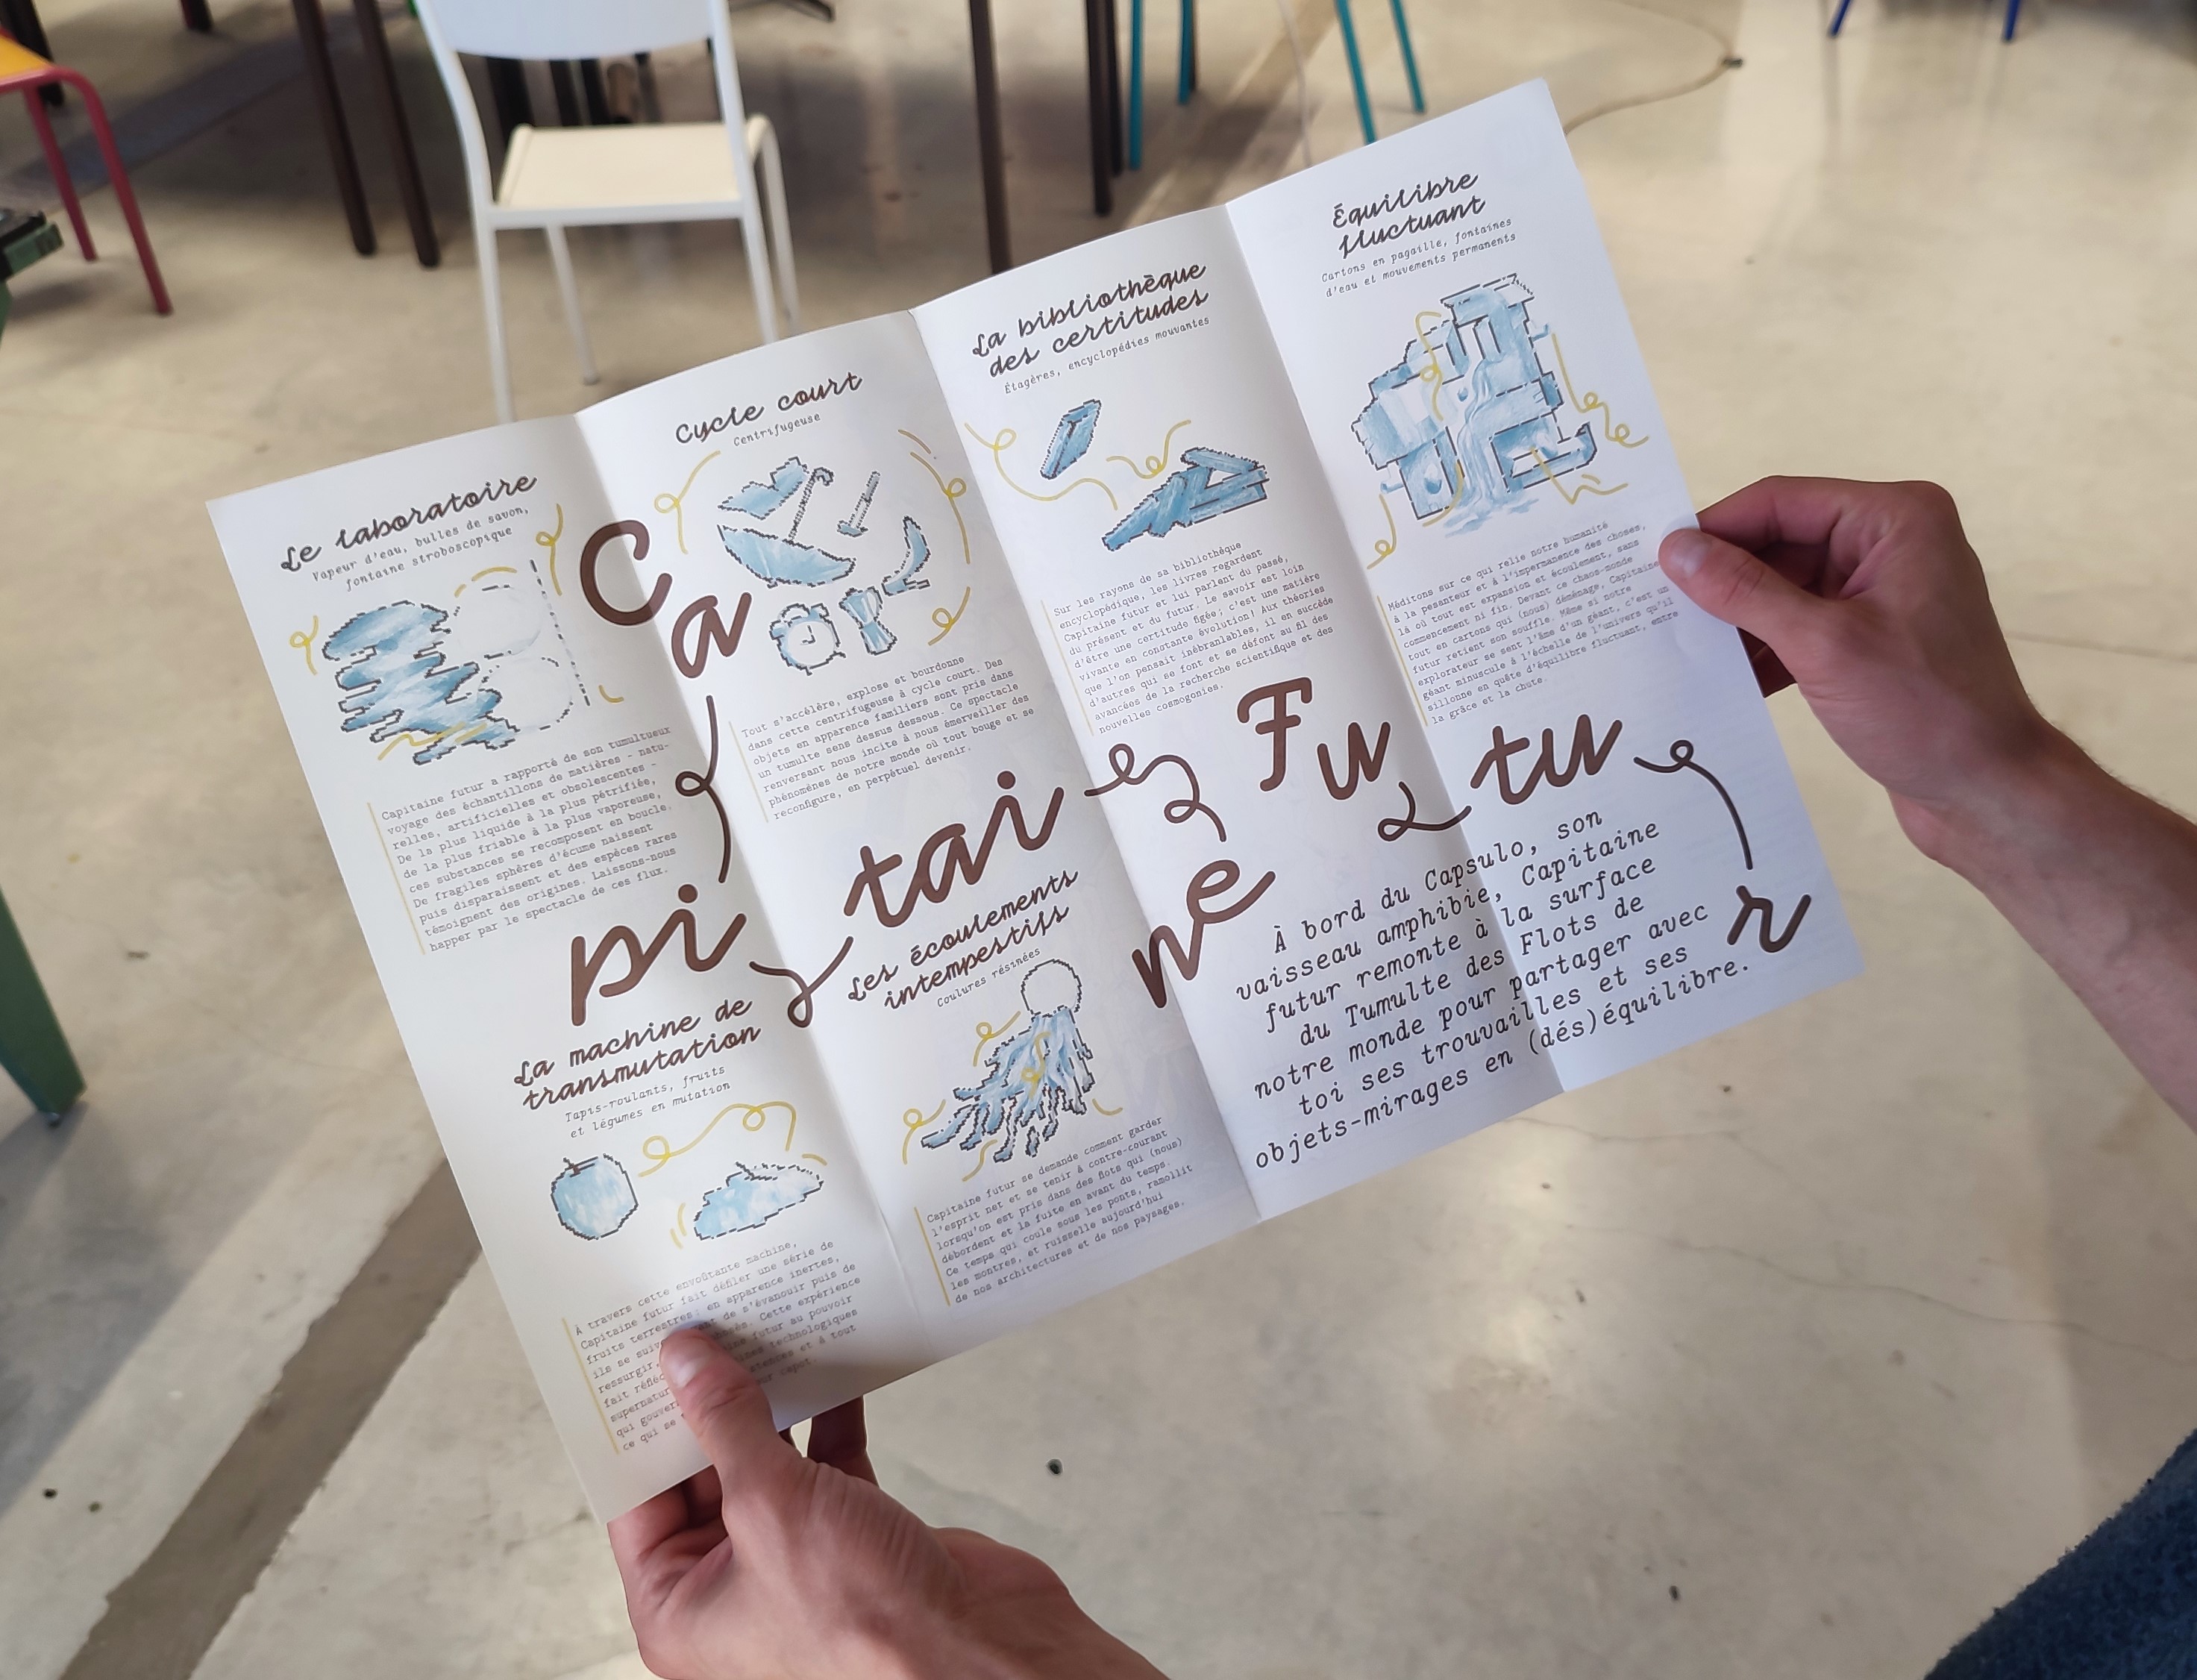 Le laboratoire
Vapeur d'eau, bulles de savon,
fontaine stroboscopique
Capitaine futur a rapporté de son tumultueux
voyage des échantillons de matières - natu-
relles, artificielles et obsolescentes -
De la plus liquide à la plus pétrifiée,
de la plus friable à la plus vaporeuse,
ces substances se recomposent en boucle.
De fragiles sphères d'écume naissent
puis disparaissent et des espèces rares
témoignent des origines. Laissons-nous
happer par le spectacle de ces flux.
Cycle court
Centrifugeuse
Tout s'accélère, explose et bourdonne
dans cette centrifugeuse à cycle court. Des
objets en apparence familiers sont pris dans
un tumulte sens dessus dessous. Ce spectacle
renversant nous incite à nous émerveiller des
phénomènes de notre monde où tout bouge et se
reconfigure, en perpétuel devenir.
La bibliothèque
des certitudes
Étagères, encyclopédies mouvantes
Sur les rayons de sa bibliothèque
encyclopédique, les livres regardent
Capitaine futur et lui parlent du passé,
du présent et du futur. Le savoir est loin
d'être une certitude figée, c'est une matière
vivante en constante évolution! Aux théories
que l'on pensait inébranlables, il en succède
d'autres qui se font et se défont au fil des
avancées de la recherche scientifique et des
nouvelles cosmogonies.
Équilibre
fluctuant
Cartons en pagaille, fontaines
d'eau et mouvements permanents
Méditons sur ce qui relie notre humanité
à la pesanteur et à l'impermanence des choses,
là où tout est expansion et écoulement, sans
commencement ni fin. Devant ce chaos-monde
tout en cartons qui (nous) déménage, Capitaine
futur retient son souffle. Même si notre
explorateur se sent l'âme d'un géant, c'est un
géant minuscule à l'échelle de l'univers qu'il
sillonne en quête d'équilibre fluctuant, entre
la grâce et la chute.
Ca
pi
tai
ne
Fu
tu
r
La machine de
transmutation
Tapis-roulants, fruits
et légumes en mutation
À travers cette envoûtante machine,
Capitaine futur fait défiler une série de
fruits terrestres: en apparence inertes,
ils se suiv ant de s'évanouir puis de
ressurgir, Cette expérience
fait réfléc ine futur au pouvoir
supernatur technologiques
qui gouver et à tout
ce qui se capot.
Les écoulements
intempestifs
Coulures résinées
Capitaine futur se demande comment garder
l'esprit net et se tenir à contre-courant
lorsqu'on est pris dans des flots qui (nous)
débordent et la fuite en avant du temps.
Ce temps qui coule sous les ponts, ramollit
les montres, et ruisselle aujourd'hui
de nos architectures et de nos paysages.
À bord du Capsulo, son
vaisseau amphibie, Capitaine
futur remonte à la surface
du Tumulte des Flots de
notre monde pour partager avec
toi ses trouvailles et ses
objets-mirages en (dés)équilibre.